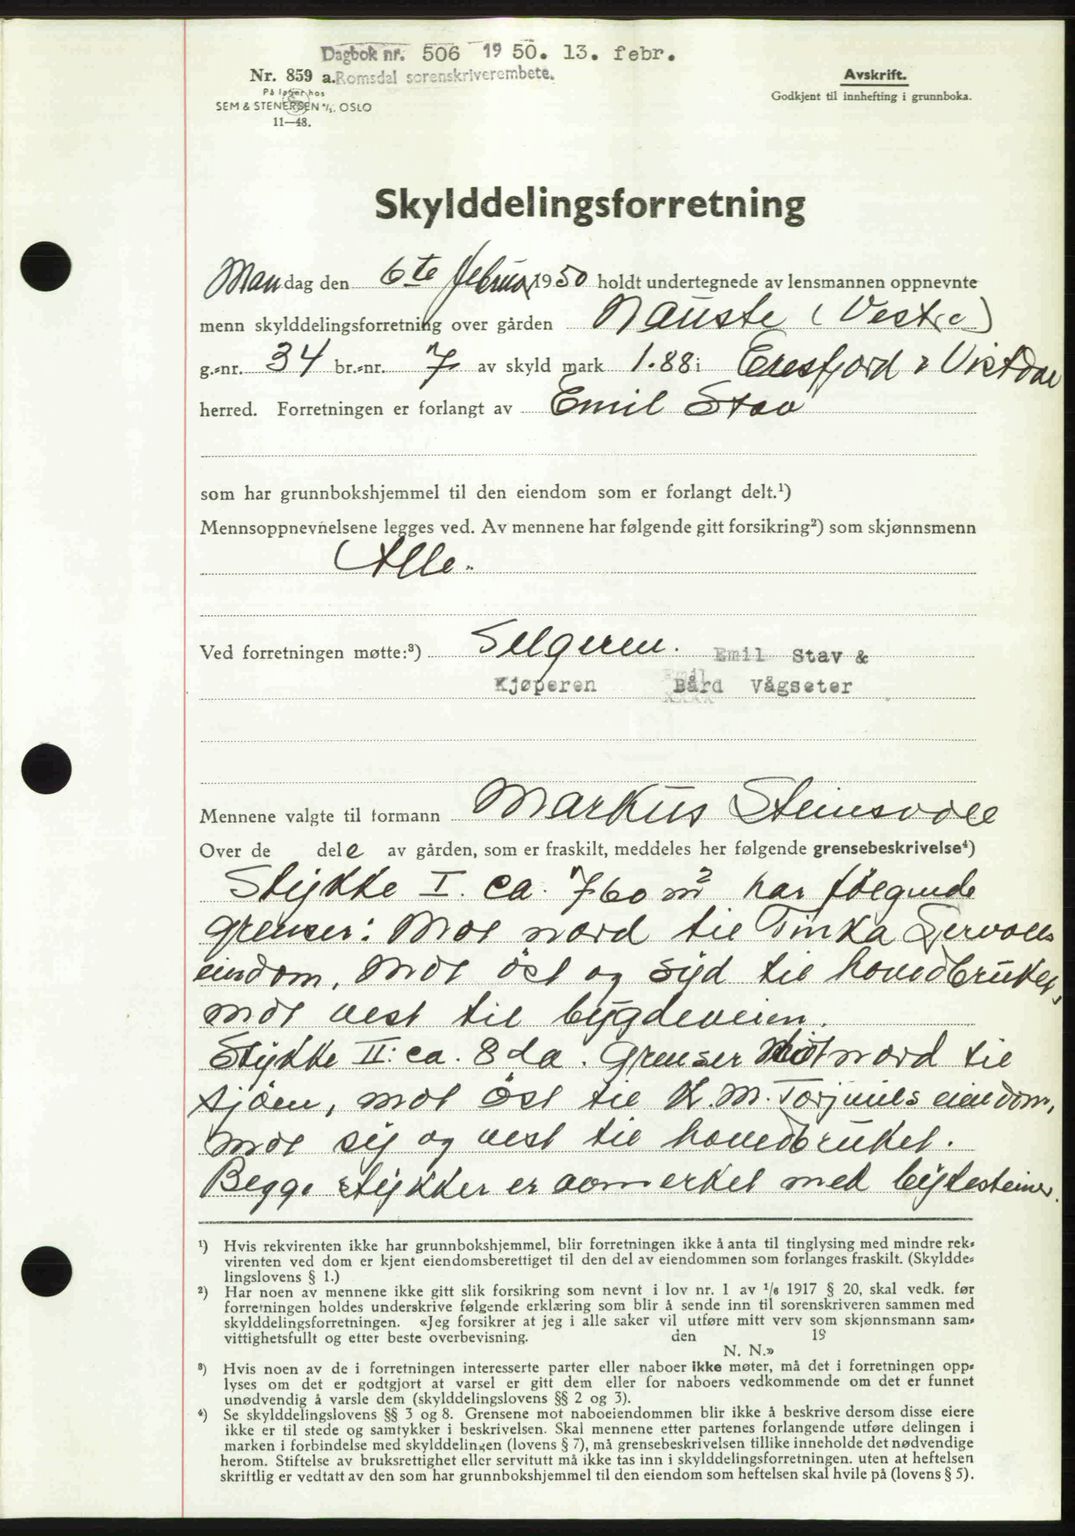 Dagbok nr. 506 1950. 13. febr.
Nr. 859 a. Romsdal sorenskriverembete.
På lager hos
SEM & STENERSEN A/S. OSLO
11—48.
Avskrift.
Godkjent til innhefting i grunnboka.
Skylddelingsforretning
Mandag den 6te februar 1950 holdt undertegnede av lensmannen oppnevnte
menn skylddelingsforretning over gården Nauste (Vestre)
g.-nr. 34 br.-nr. 7 av skyld mark 1.88 i Eresfjord & Vistdal
herred. Forretningen er forlangt av Emil Stav
som har grunnbokshjemmel til den eiendom som er forlangt delt.¹)
Mennsoppnevnelsene legges ved. Av mennene har følgende gitt forsikring²) som skjønnsmenn
Alle.
Ved forretningen møtte:³) Selgeren. Emil Stav &
Kjøperen Bård Vågseter
Mennene valgte til formann Markus Steinsvoll
Over de dele av gården, som er fraskilt, meddeles her følgende grensebeskrivelse⁴)
Stykke I. ca. 760 m² har følgende
grenser: Mot nord til Tinka Gervolls
eiendom, mot öst og syd til hovedbruket,
mot vest til bygdeveien.
Stykke II: ca. 8 da. Grenser mot nord til
sjöen, mot öst til K. M. Torjuuls eiendom,
mot sy og vest til hovedbruket.
Begge stykker er avmerket med bytesteiner.
¹) Hvis rekvirenten ikke har grunnbokshjemmel, blir forretningen ikke å anta til tinglysing med mindre rek-
virenten ved dom er kjent eiendomsberettiget til den del av eiendommen som forlanges fraskilt. (Skyldde-
lingslovens § 1.)
²) Har noen av mennene ikke gitt slik forsikring som nevnt i lov nr. 1 av 1/6 1917 § 20, skal vedk. før
forretningen holdes underskrive følgende erklæring som blir å sende inn til sorenskriveren sammen med
skylddelingsforretningen. «Jeg forsikrer at jeg i alle saker vil utføre mitt verv som skjønnsmann sam-
vittighetsfullt og etter beste overbevisning. den 19
N. N.»
³) Hvis noen av de i forretningen interesserte parter eller naboer ikke møter, må det i forretningen opp-
lyses om det er godtgjort at varsel er gitt dem eller for naboers vedkommende om det er funnet
unødvendig å varsle dem (skylddelingslovens §§ 2 og 3).
⁴) Se skylddelingslovens §§ 3 og 8. Grensene mot naboeiendommen blir ikke å beskrive dersom disse eiere
ikke er til stede og samtykker i beskrivelsen. Skal mennene etter partenes forlangende utføre delingen i
marken i forbindelse med skylddelingen (lovens § 7), må grensebeskrivelsen tillike inneholde det nødvendige
herom. Stiftelse av bruksrettighet eller servitutt må ikke tas inn i skylddelingsforretningen. uten at heftelsen
skriftlig er vedtatt av den som har grunnbokshjemmel til den eiendom som heftelsen skal hvile på (lovens § 5).